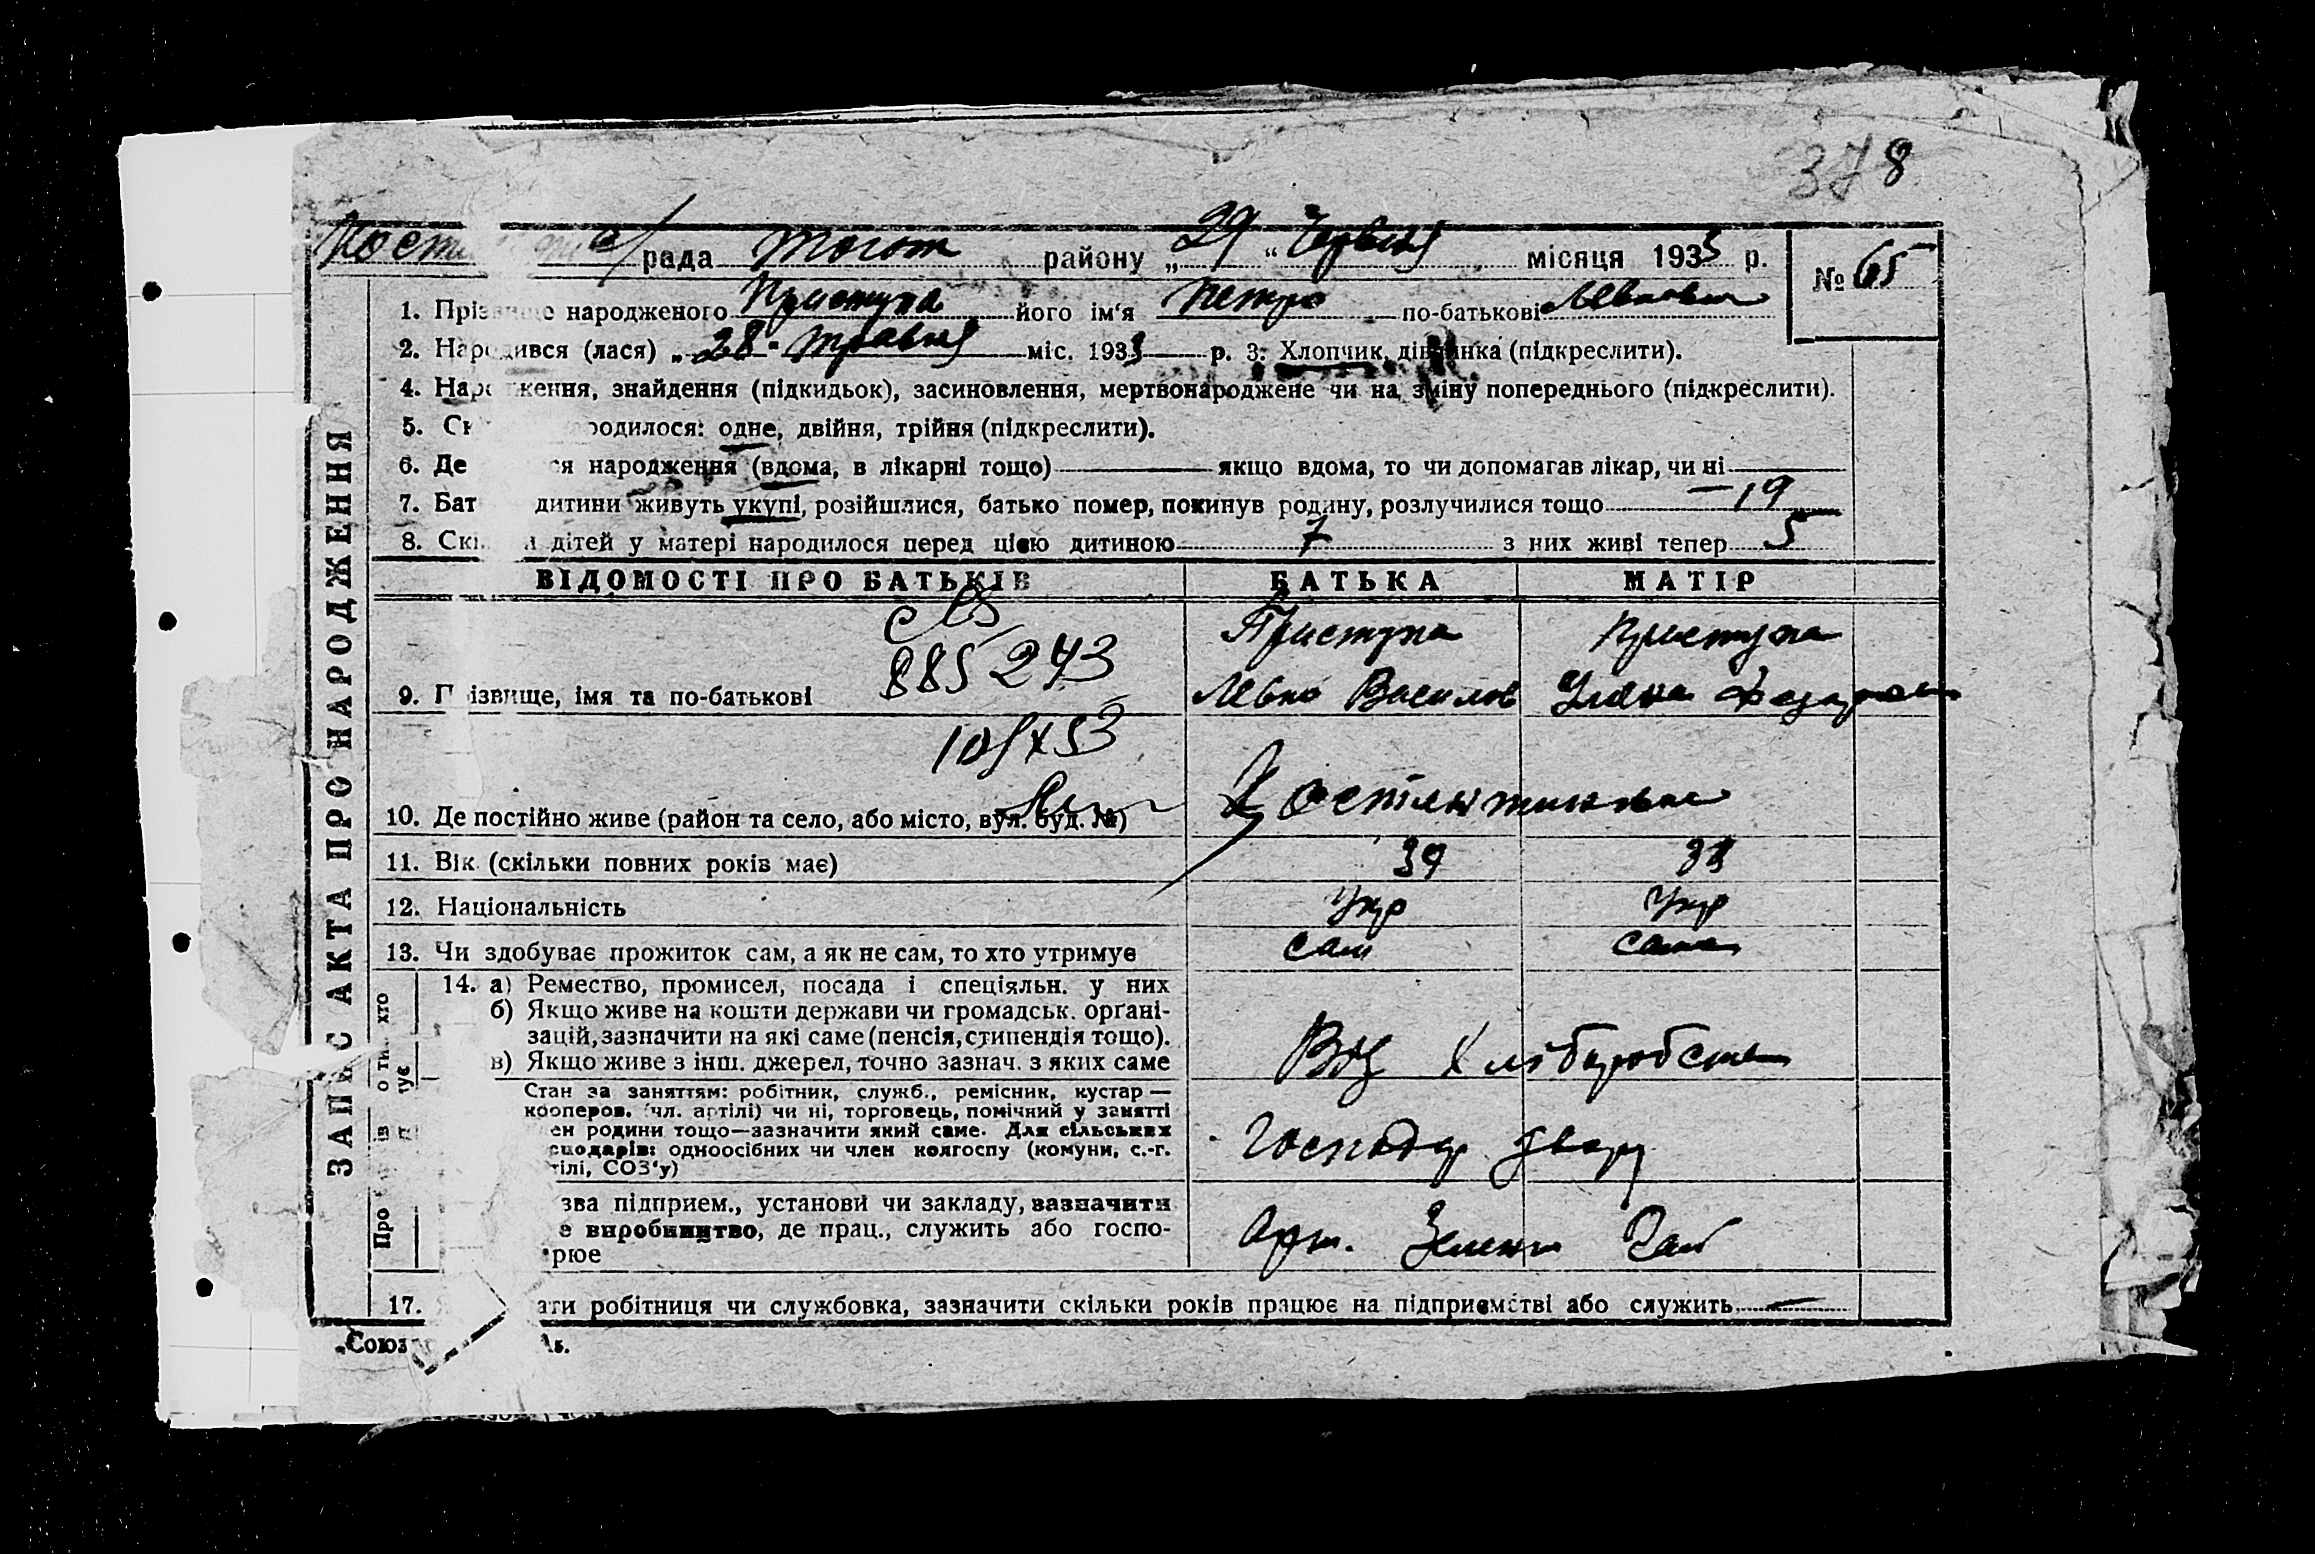 378
рада районy „29“ Червня місяця 1933 р. № 65
1. народженого Приступа його ім‘я Петро по-батькові Левкович
2. Народився (лася) „28“ травня міс. 1933 р. 3. Хлопчик, дівчинка (підкреслити).
4. знайдення (підкидьок), засиновлення, мертвонароджене чи на зміну попереднього (підкреслити).
5. одне, двійня, трійня (підкреслити).
6. Де народження (вдома, в лікарні тощо) якщо вдома, то чи допомагав лікар, чи ні
7. дитини живуть укупі, розійшлися, батько помер, покинув родину, розлучилися тощо — 19
8. дітей у матері народилося перед цією дитиною 7 з них живі тепер 5
ВІДОМОСТІ ПРО БАТЬКІВ БАТЬКА МАТІР
885243
Приступа Приступа
9. Прізвище, імя та по-батькові Левко Василов Уляна
10. Де постійно живе (район та село, або місто, вул. буд. №)
11. Вік (скільки повних років має) 39
12. Національність Укр Укр
13. Чи здобуває прожиток сам, а як не сам, то хто утримує сам сама
14. а) Ремество, промисел, посада і спеціяльн. у них
б) Якщо живе на кошти держави чи громадськ. орґані-
зацій, зазначити на які саме (пенсія, стипендія тощо).
в) Якщо живе з інш. джерел, точно зазнач. з яких саме Хліборобство
Стан за заняттям: робітник, служб., ремісник, кустар —
кооперов. (чл. артілі) чи ні, торговець, помічний у занятті
родини тощо—зазначити який саме. Для сільських
одноосібних чи член колгоспу (комуни, с.-г.
СОЗ‘у) Господар двору
підприєм., установи чи закладу, зазначити
виробництво, де прац., служить або госпо-
Арт. Гай
17. робітниця чи службовка, зазначити скільки років працює на підприємстві або служить —
ЗАПИС АКТА ПРО НАРОДЖЕННЯ